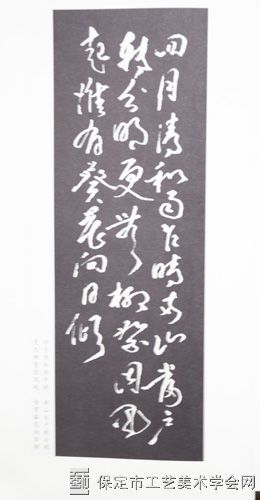 四月清和雨乍晴南山當戶
轉分明更無柳絮因風
起惟有葵花向日傾
保定市工艺美术学会网